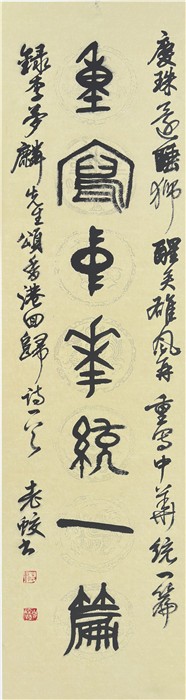 慶珠還睡獅醒矣雄風再重寫中華統一篇
重寫中華統一篇
錄李夢麟先生頌香港回歸詩一首 老蛟書